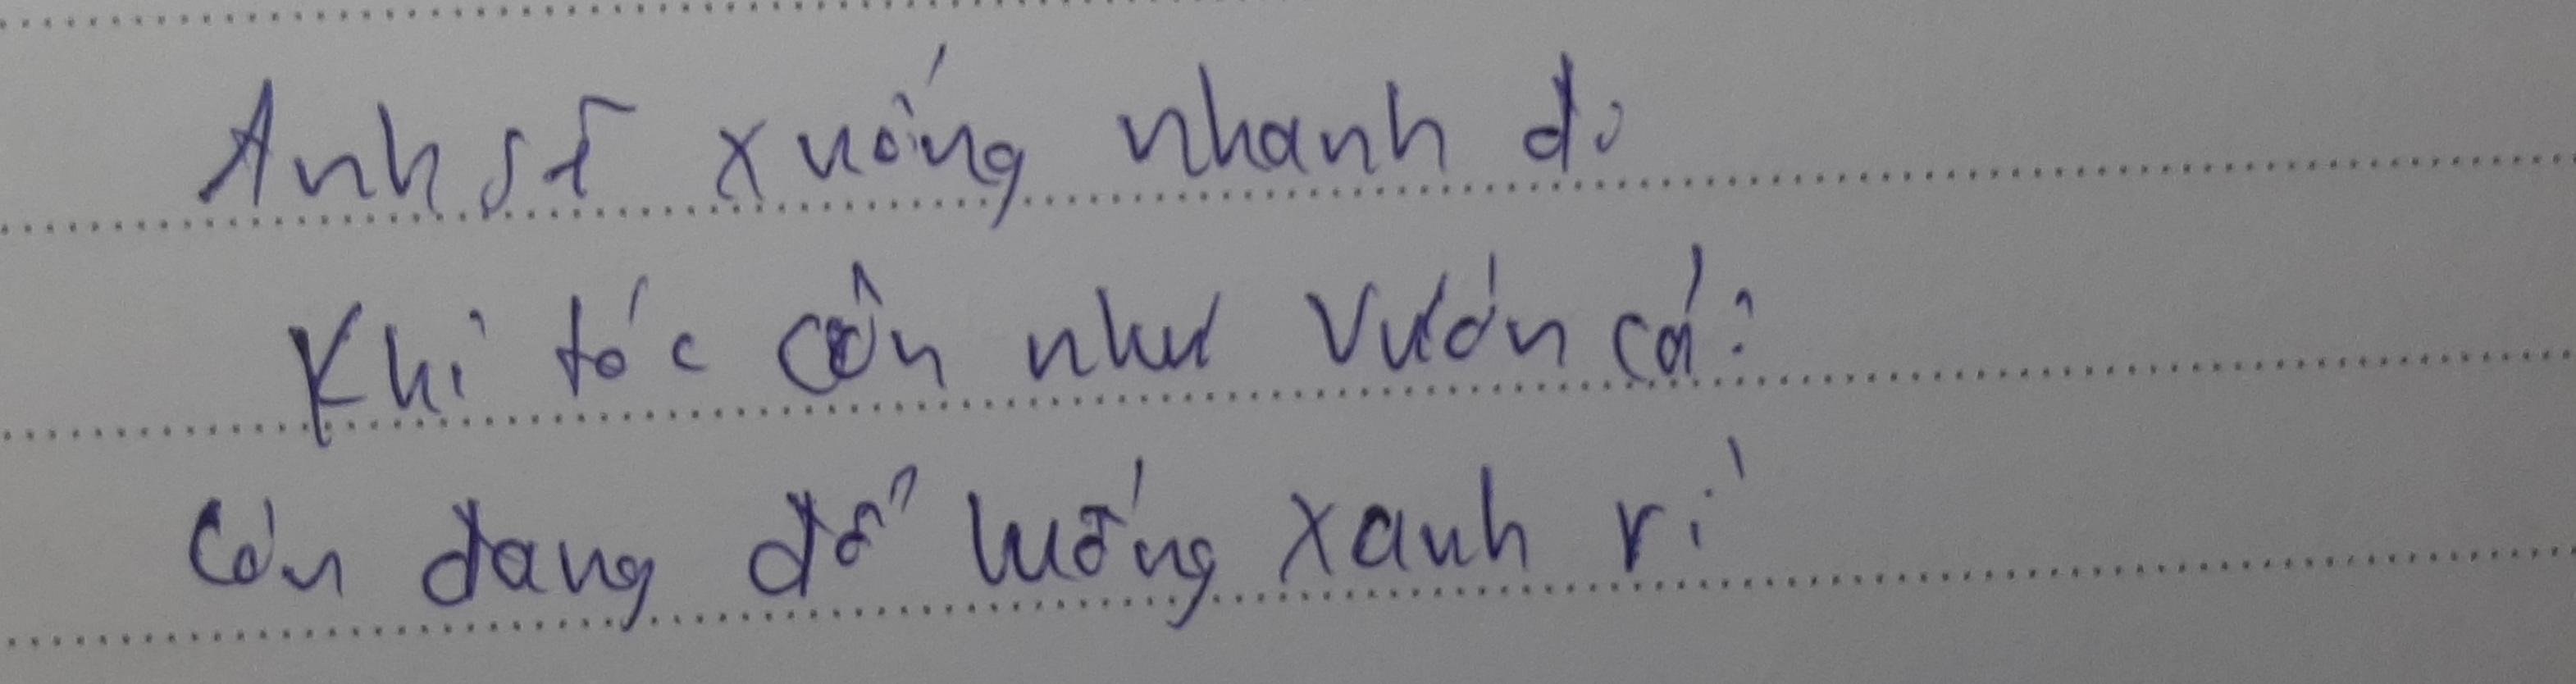 Anh sẽ xuống nhanh đi
Khi tóc còn như vườn cải
Còn đang đổ luống xanh rì